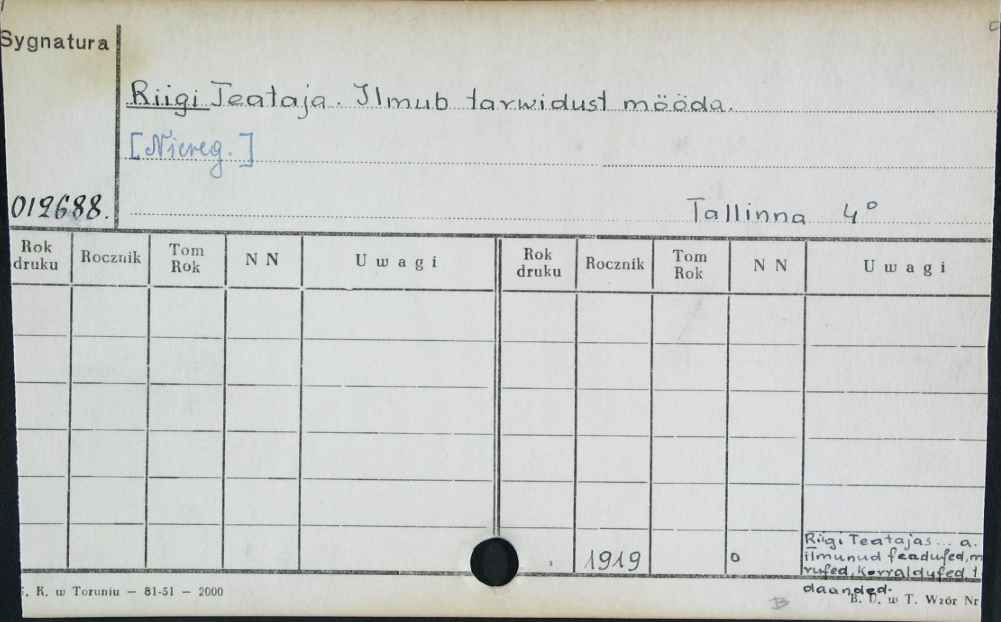 Sygnatura
Riigi Teataja. Ilmub tarwidust mööda.
[Niereg.]
012688.
Tallinna 4°
Rok druku Rocznik Tom Rok N N Uwagi Rok druku Rocznik Tom Rok N N Uwagi
1919 0
Riigi Teatajas... a.
ilmunud feadufed, m
rufed, korraldufed t
daanded.
. K. w Toruniu — 81-51 — 2000
B
B. U. w T. Wzór Nr